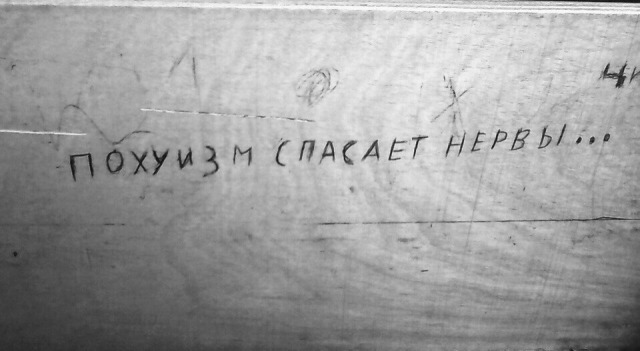 ПОХУИЗМ СПАСАЕТ НЕРВЫ...